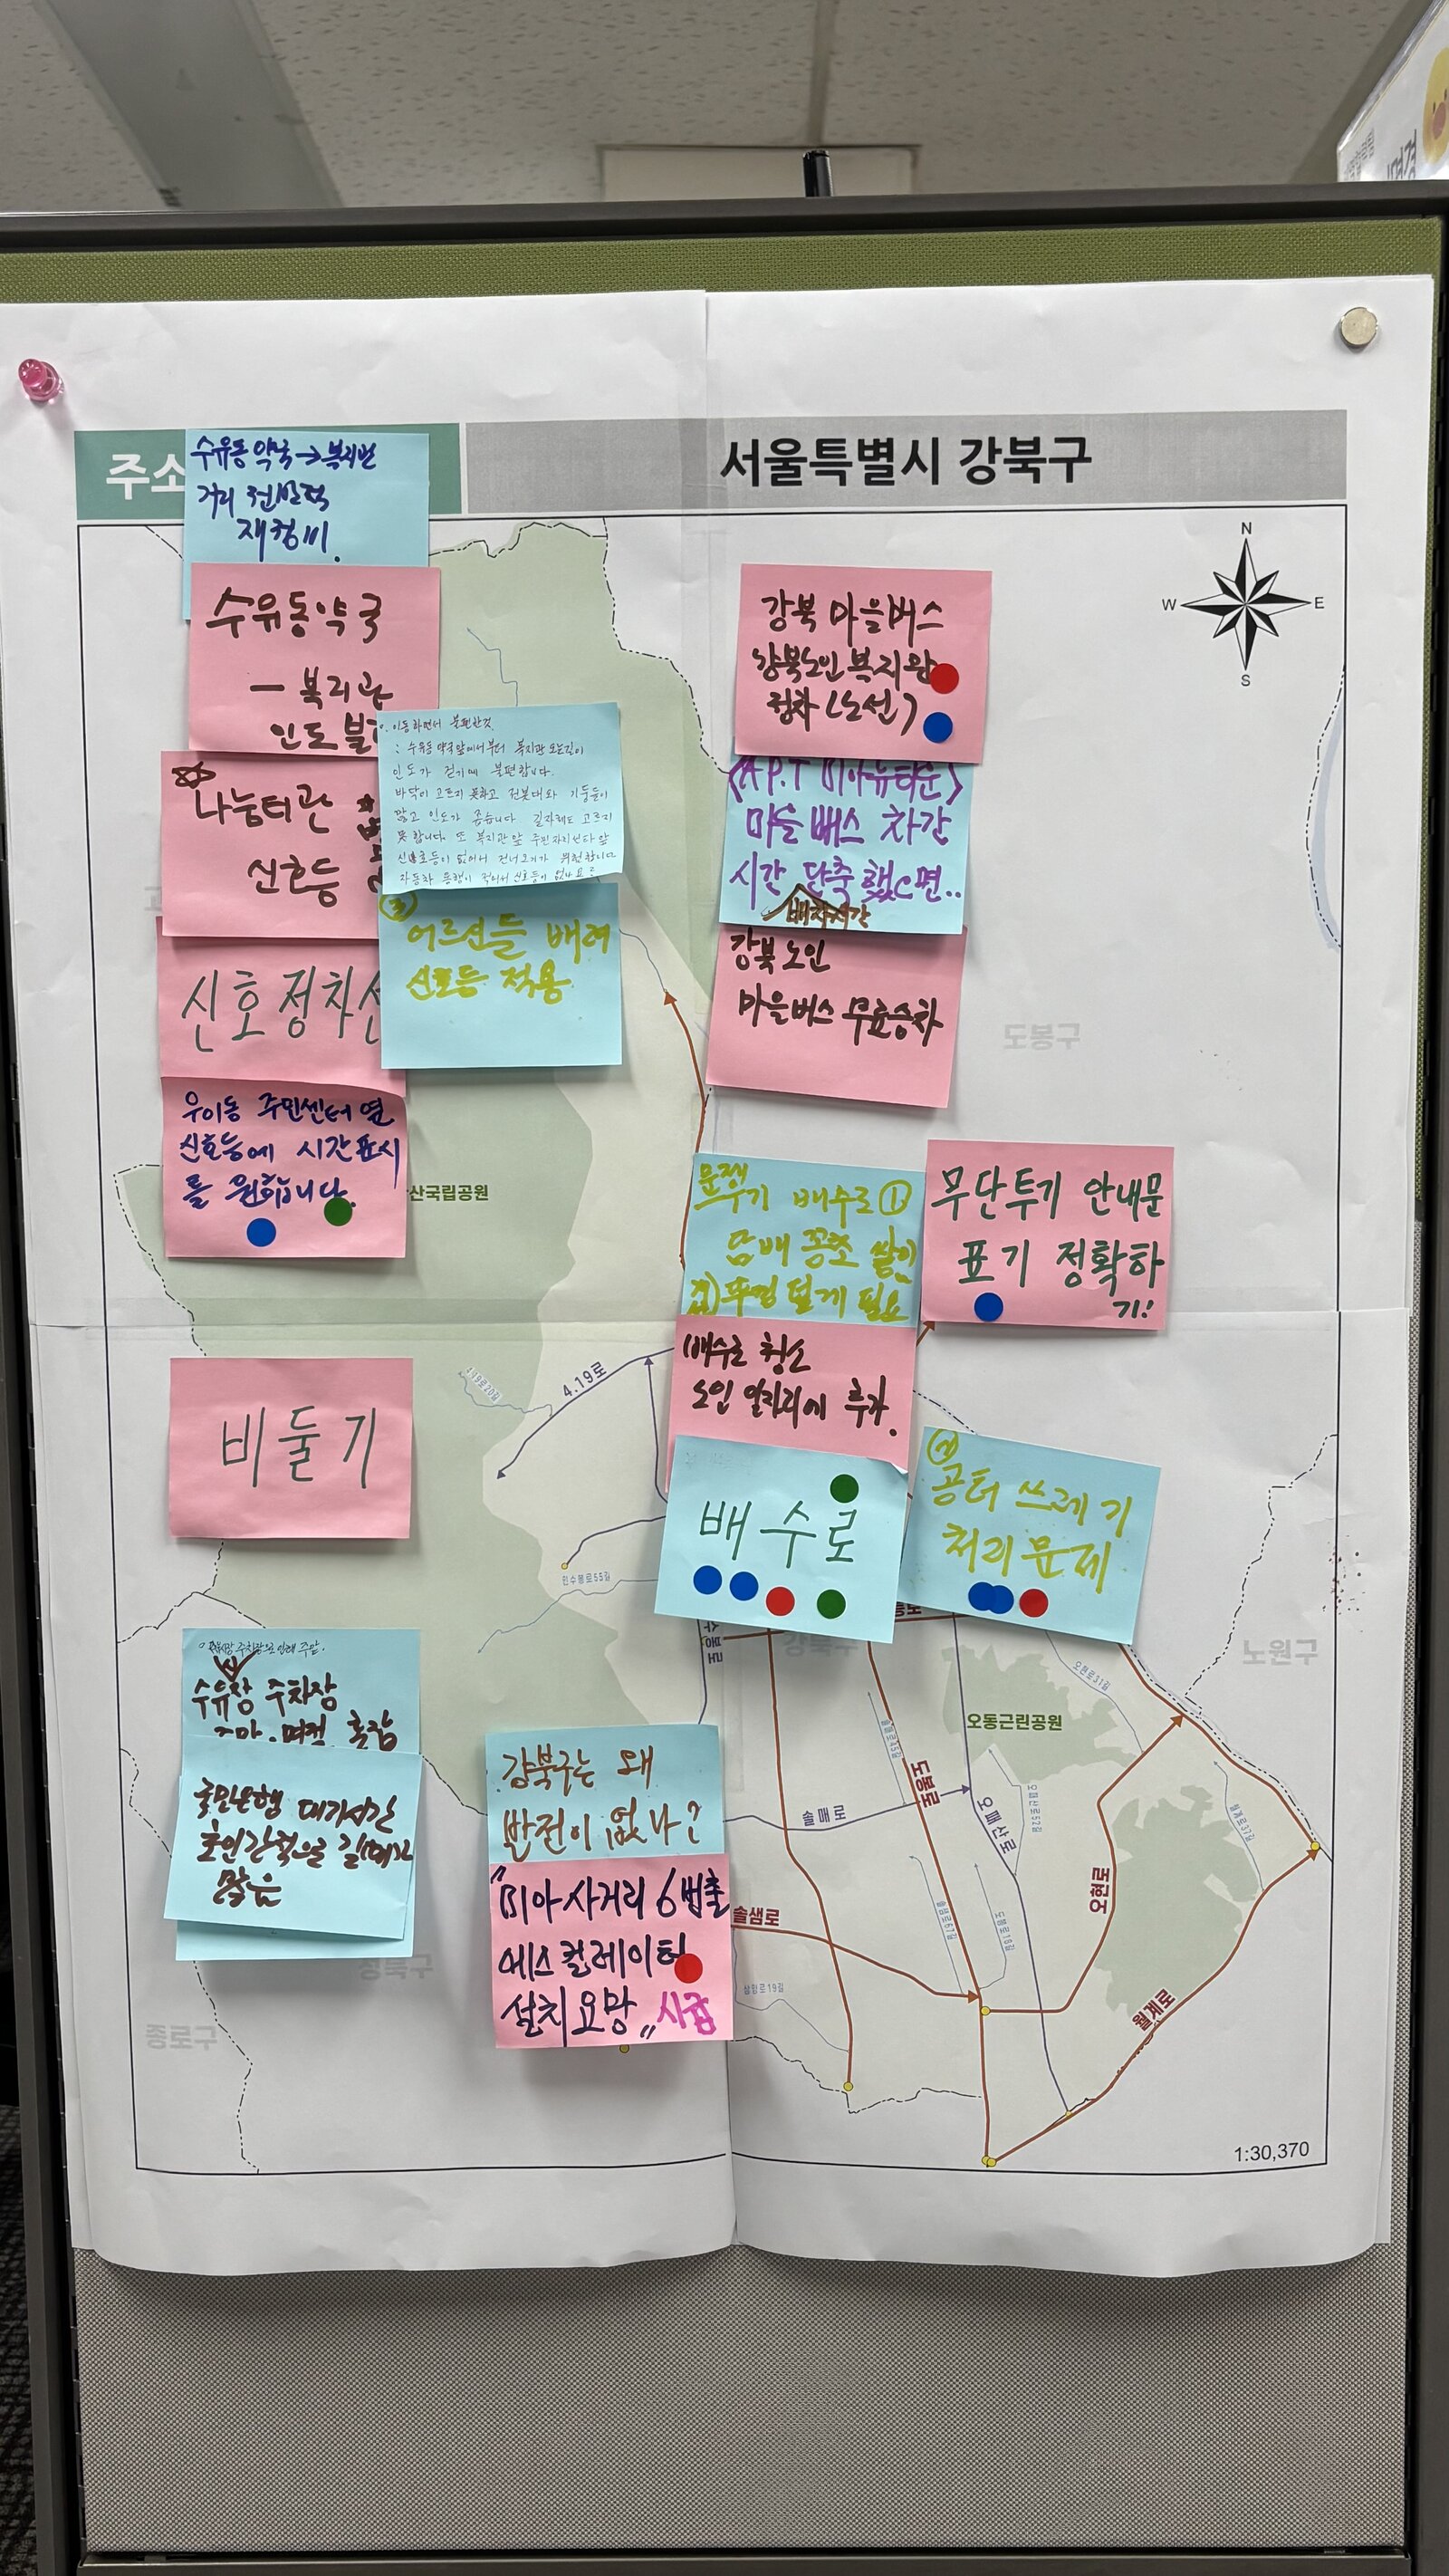 주소
서울특별시 강북구
N
W
E
S
수유동 약국→복지관
거리 전반적
재정비.
수유동약국
- 복지관
인도 불
나눔터관
신호등
신호정차선
우이동 주민센터 옆
신호등에 시간표시
를 원합니다.
이동하면서 불편한것.
: 수유동 약국앞에서부터 복지관 오는길이
인도가 걷기에 불편합니다.
바닥이 고르지 못하고 전봇대와 기둥들이
많고 인도가 좁습니다 길자체도 고르지
못합니다. 또 복지관앞 주민자치센타 앞
신호등이 없어서 건너오기가 위험합니다
자동차 통행이 적어서 신호등이 없나요
③
어르신들 배려
신호등 적용
강북 마을버스
강북노인복지관
정차 (노선)
(A.P.T 미아뉴타운)
마을 버스 차간
시간 단축 했으면..
배차시간
강북 노인
마을버스 무료승차
도봉구
산국립공원
문제
배수로 ①
담배 꽁초 쌓이
뚜껑 덮게 필요
무단투기 안내문
표기 정확하
기!
배수로 청소
노인 일자리에 추가.
4.19로
4.19로20길
비둘기
배수로
②
공터 쓰레기
처리 문제
인수봉로55길
강북구
노원구
수유장 주차장
국민은행 대기시간
많음
강북구는 왜
발전이 없나?
"미아사거리 6번출
에스컬레이터
설치 요망" 시급
오동근린공원
오현로31길
솔매로
도봉로
오패산로
오현로
월계로37길
솔샘로
삼양로19길
월계로
성북구
종로구
1:30,370